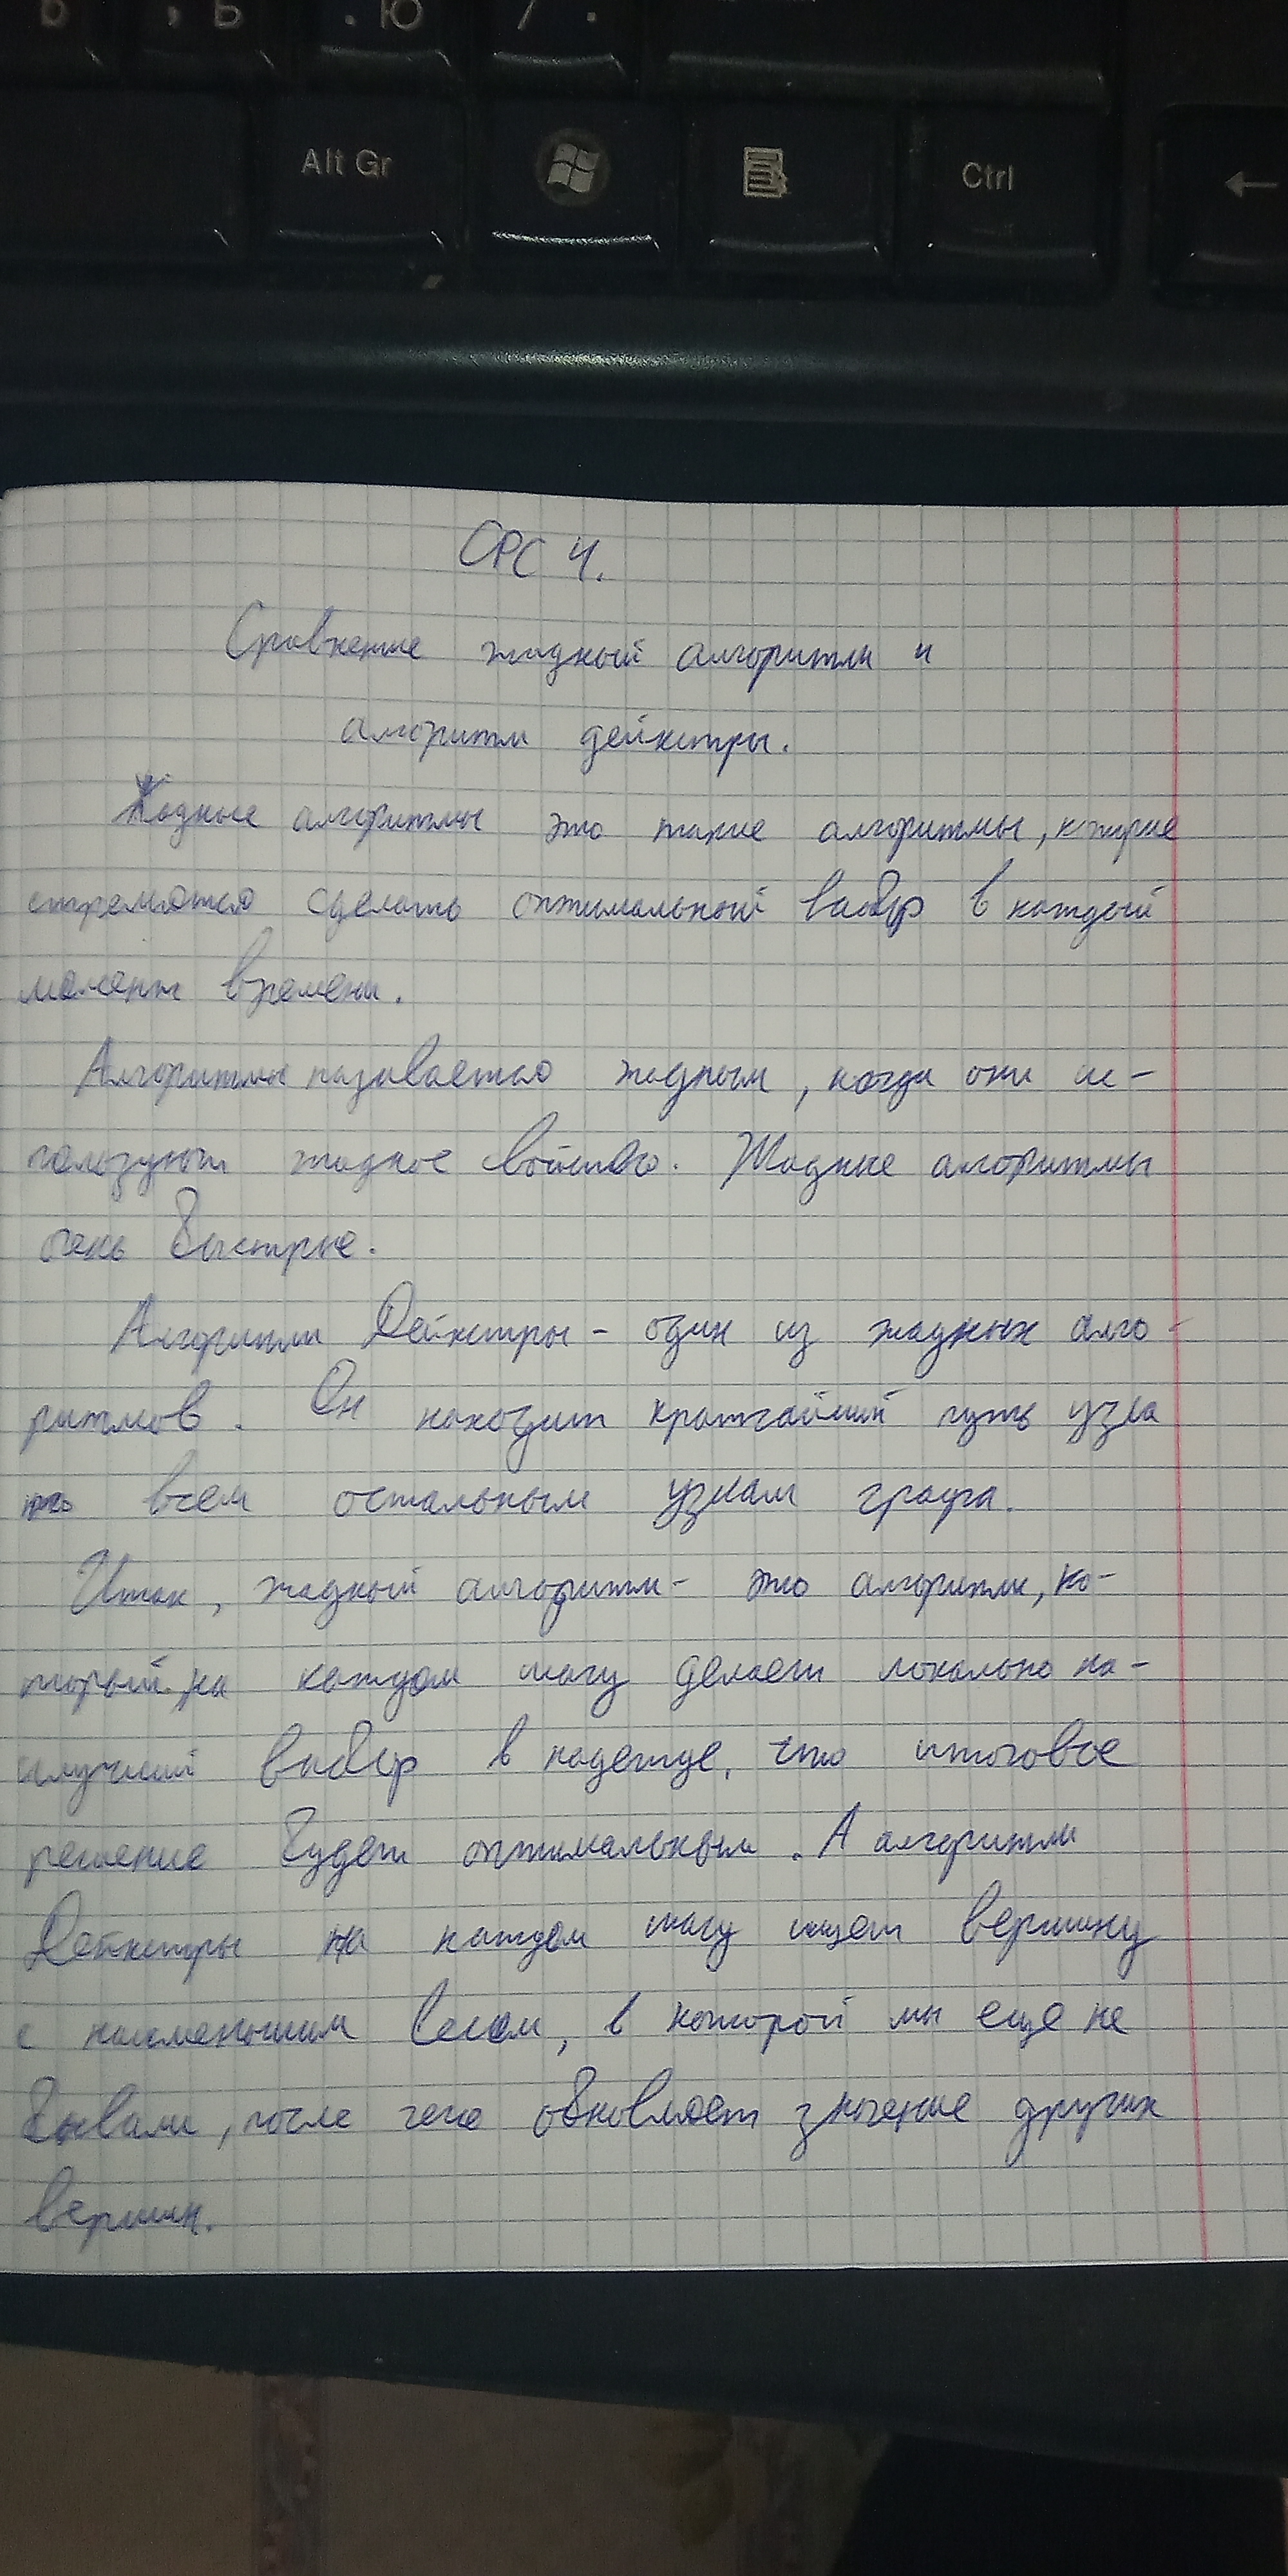 Alt Gr
Ctrl
СРС 4.
Сравнение жадный алгоритм и
алгоритм дейкстры.
Жадные алгоритмы это такие алгоритмы, которые
стремятся сделать оптимальный выбор в каждый
момент времени.
Алгоритмы называется жадным, когда они ис-
пользуют жадное свойство. Жадные алгоритмы
очень быстрые.
Алгоритм Дейкстры - один из жадных алго-
ритмов. Он находит кратчайший путь узла
по всем остальным узлам графа.
Итак, жадный алгоритм - это алгоритм, ко-
торый на каждом шагу делает локально на-
илучший выбор в надежде, что итоговое
решение будет оптимальным. А алгоритм
Дейкстры на каждом шагу ищет вершину
с наименьшим весом, в которой мы еще не
бывали, после чего обновляет значение других
вершин.